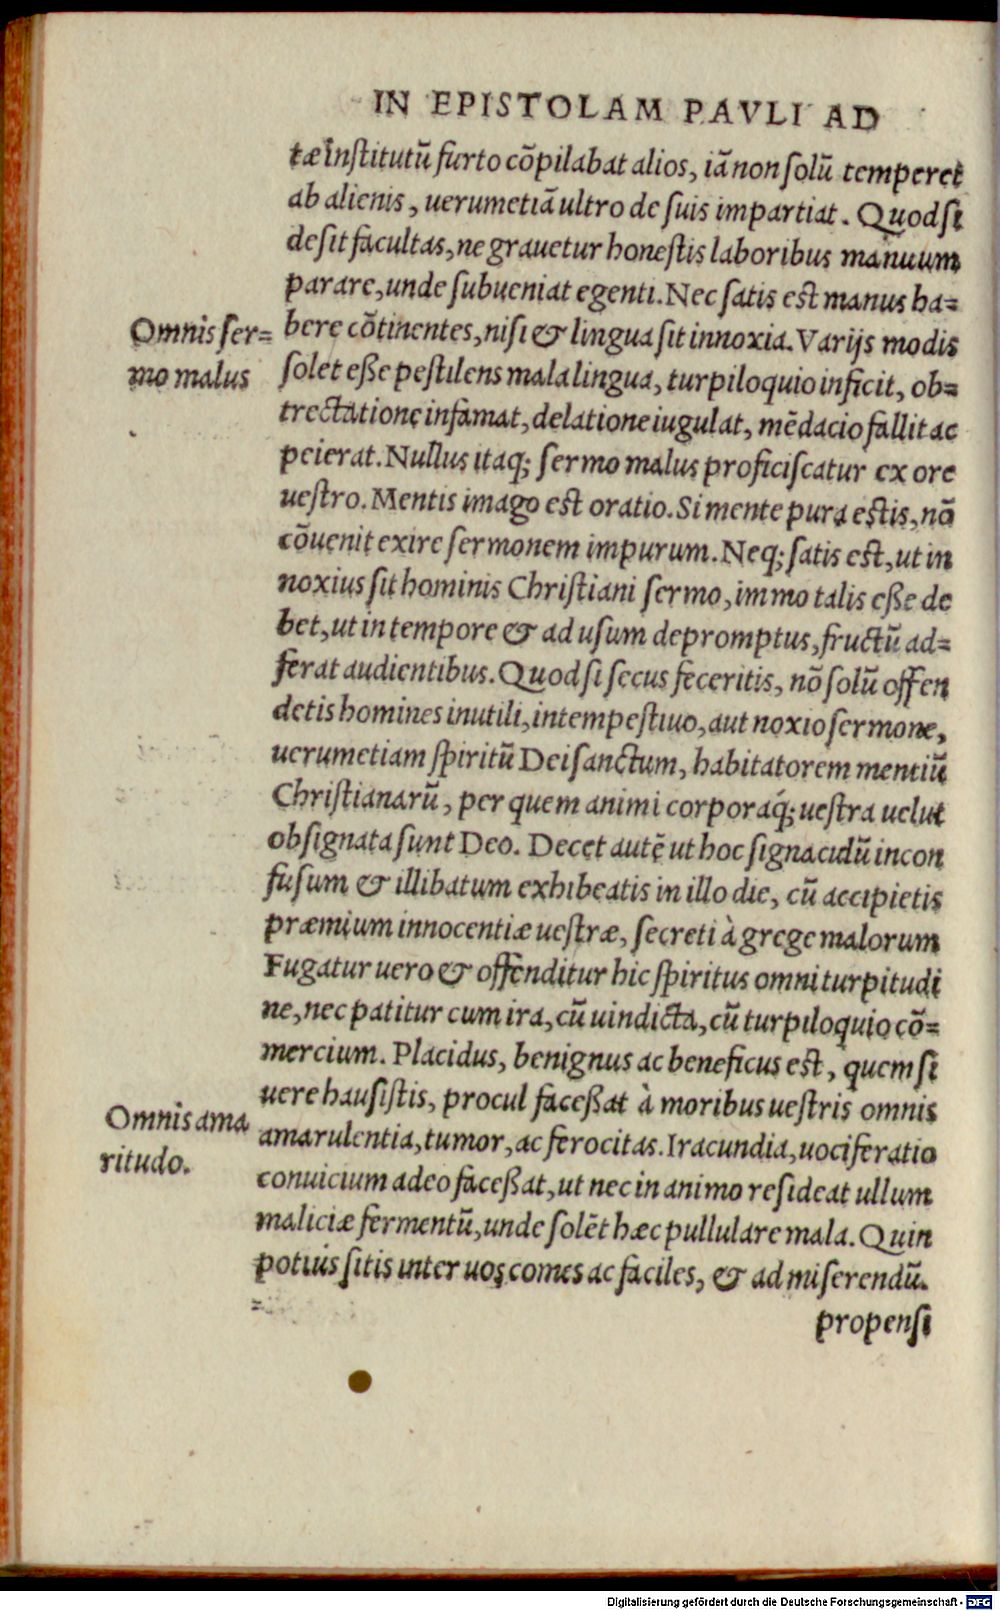 IN EPISTOLAM PAVLI AD
tæ institutũ furto cõpilabat alios, iã non solũ temperet
ab alienis, uerumetiã ultro de suis impartiat. Quod si
desit facultas, ne grauetur honestis laboribus manuum
parare, unde subueniat egenti. Nec satis est manus ha=
Omnis ser=
mo malus
bere cõtinentes, nisi & lingua sit innoxia. Varijs modis
solet eße pestilens mala lingua, turpiloquio inficit, ob=
trectatione infamat, delatione iugulat, mẽdacio fallit ac
peierat. Nullus itaq; sermo malus proficiscatur ex ore
uestro. Mentis imago est oratio. Si mente pura estis, nõ
cõuenit exire sermonem impurum. Neq; satis est, ut in
noxius sit hominis Christiani sermo, immo talis eße de
bet, ut in tempore & ad usum depromptus, fructũ ad=
ferat audientibus. Quod si secus feceritis, nõ solũ offen
detis homines inutili, intempestiuo, aut noxio sermone,
uerumetiam spiritũ Dei sanctum, habitatorem mentiũ
Christianarũ, per quem animi corporaq́; uestra uelut
obsignata sunt Deo. Decet autẽ ut hoc signaculũ incon
fusum & illibatum exhibeatis in illo die, cũ accipietis
præmium innocentiæ uestræ, secreti à grege malorum
Fugatur uero & offenditur hic spiritus omni turpitudi
ne, nec patitur cum ira, cũ uindicta, cũ turpiloquio cõ=
mercium. Placidus, benignus ac beneficus est, quem si
uere hausistis, procul faceßat à moribus uestris omnis
Omnis ama
ritudo.
amarulentia, tumor, ac ferocitas. Iracundia, uociferatio
conuicium adeo faceßat, ut nec in animo resideat ullum
maliciæ fermentũ, unde solẽt hæc pullulare mala. Quin
potius sitis inter uos comes ac faciles, & ad miserendũ.
propensi
Digitalisierung gefördert durch die Deutsche Forschungsgemeinschaft - DFG